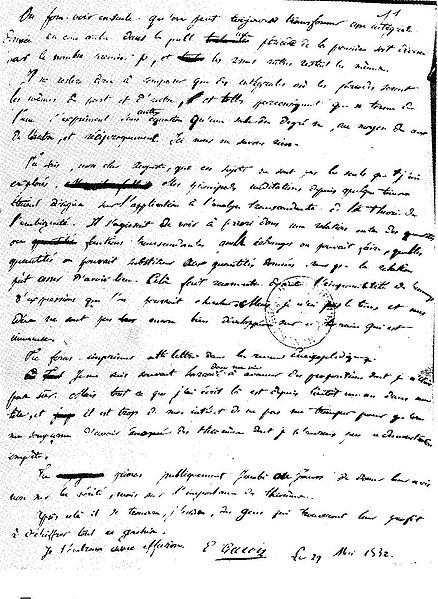 On fera voir ensuite qu'on peut toujours transformer une intégrale
donnée en une autre dans laquelle période de la première soit divisée
par le nombre premier p, et les 2n-1 autres restent les mêmes.
Il ne restera donc à comparer que des intégrales où les périodes seront
les mêmes de part et d'autre, et telles par conséquent que n termes de
l'une s'expriment sans autre équation qu'une seule du degré n, au moyen de ceux
de l'autre, et réciproquement. Ici nous ne savons rien.
Tu sais, mon cher Auguste, que ces sujets ne sont pas les seuls que j'aie
explorés. Mes principales méditations depuis quelque temps
étaient dirigées sur l'application à l'analyse transcendante de la théorie de
l'ambiguité. Il s'agissait de voir à priori dans une relation entre des quantités
ou fonctions transcendantes quels échanges on pouvait faire, quelles
quantités on pouvait substituer aux quantités données sans que la relation
pût cesser d'avoir lieu. Cela fait reconnaître l'impossibilité de
d'expressions que l'on pourrait chercher. Mais je n'ai pas le temps et mes
idées ne sont pas encore bien développées sur ce terrain qui est
immense.
Tu feras imprimer cette lettre dans la revue Encyclopédique.
Je me suis souvent hasardé dans ma vie à avancer des propositions dont je n'étais
pas sûr. Mais tout ce que j'ai écrit là est depuis bientôt un an dans ma
tête, et il est trop de mon intérêt de ne pas me tromper pour qu'on
me soupçonne d'avoir énoncé des théorèmes dont je n'aurais pas la démonstration
complète.
Tu prieras publiquement Jacobi ou Gauss de donner leur avis
non sur la vérité, mais sur l'importance des théorèmes.
Après cela il se trouvera, j'espère, des gens qui trouveront leur profit
à déchiffrer tout ce gachis.
Je t'embrasse avec effusion. E Galois Le 29 Mai 1832.